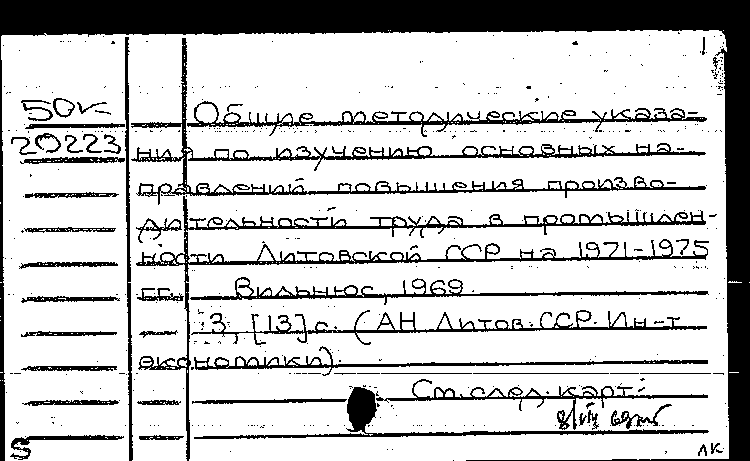 1
50к Общие методические указа-
20223 ния по изучению основных на-
правлений повышения произво-
дительности труда в промышлен-
ности Литовской ССР на 1971-1975
гг. Вильнюс, 1969.
3, [13] с. (АН Литов. ССР. Ин-т
экономики).
См. след. карт.
S ЛК